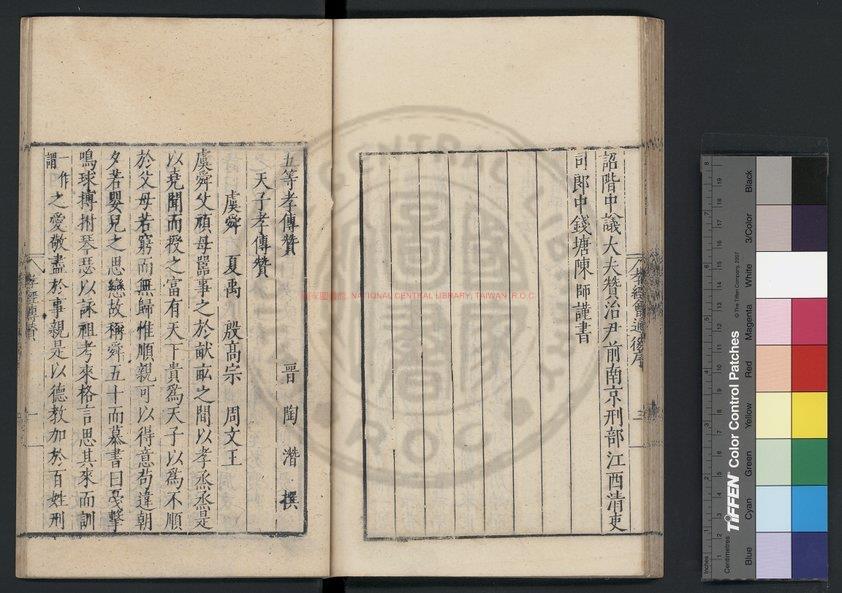 詔階中議大夫贊治尹前南京刑部江西清吏
司郎中錢塘陳師謹書
五等孝傳贊
晉陶潛撰
天子孝傳贊
虞舜 夏禹 殷高宗 周文王
虞舜父頑母嚚事之於畎畝之間以孝烝烝是
以堯聞而授之富有天下貴為天子以為不順
於父母若窮而無歸惟順親可以得意苟違朝
夕若嬰兒之思戀故稱舜五十而慕書曰戛擊
鳴球搏拊琴瑟以詠祖考來格言思其來而訓
一作謂之愛敬盡於事親是以德教加於百姓刑
國家圖書館, NATIONAL CENTRAL LIBRARY, TAIWAN, R.O.C
TIFFEN Color Control Patches
© The Tiffen Company, 2007
Centimetres
Inches
Blue
Cyan
Green
Yellow
Red
Magenta
White
3/Color
Black